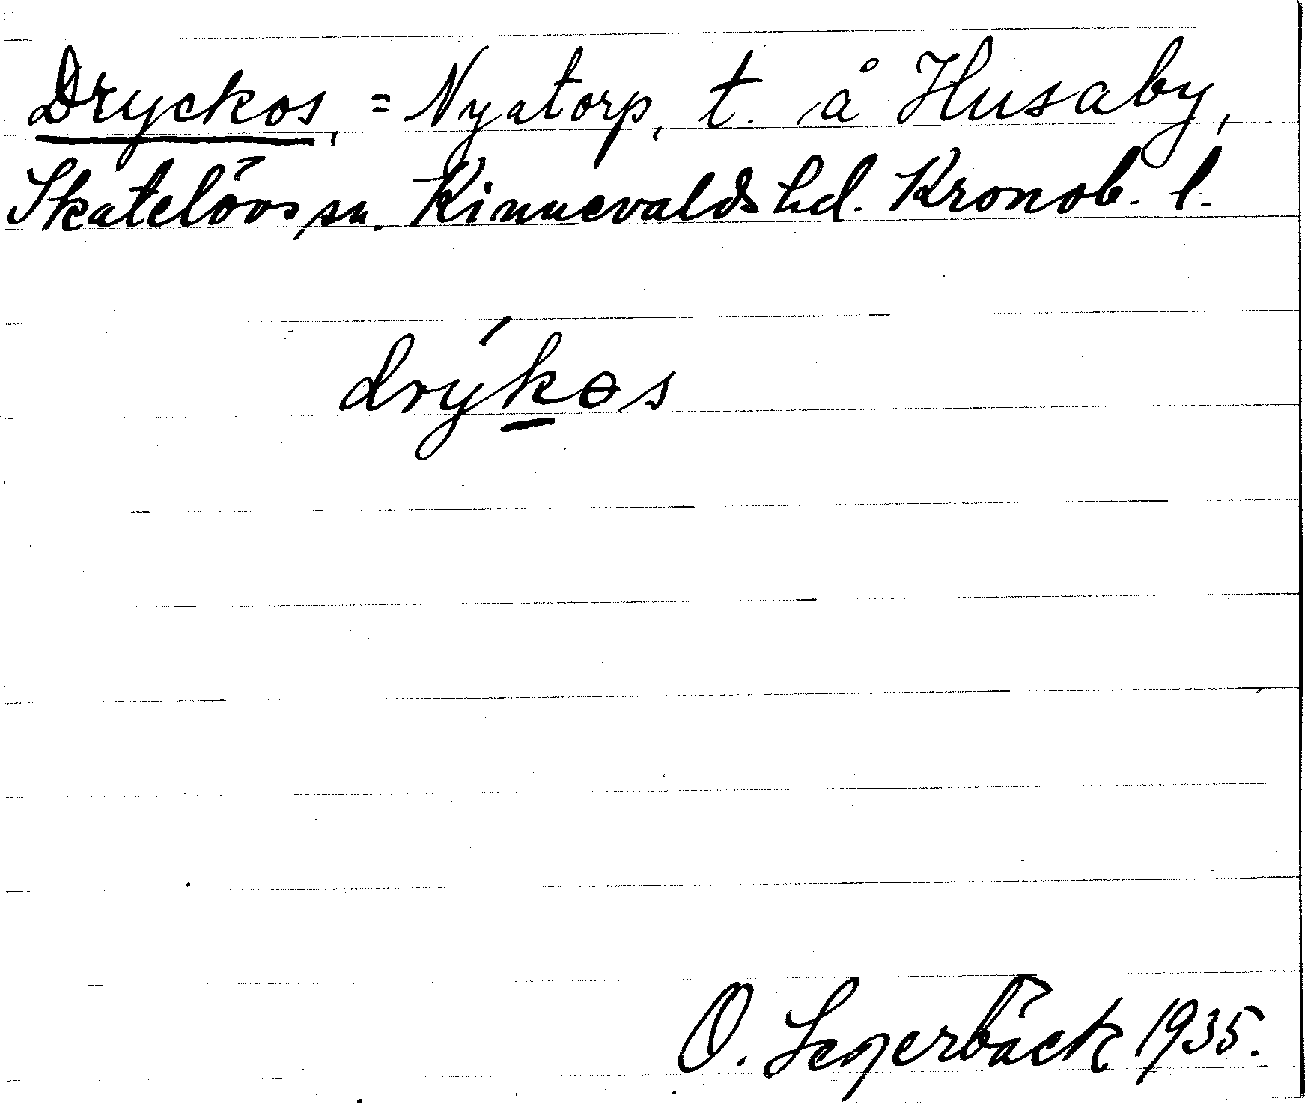 Dryckos, = Nyatorp, t. å Husaby,
Skatelövs sn. Kinnevalds hd. Kronob. l.
drýk̲ɵs
O. Segerbäck 1935.